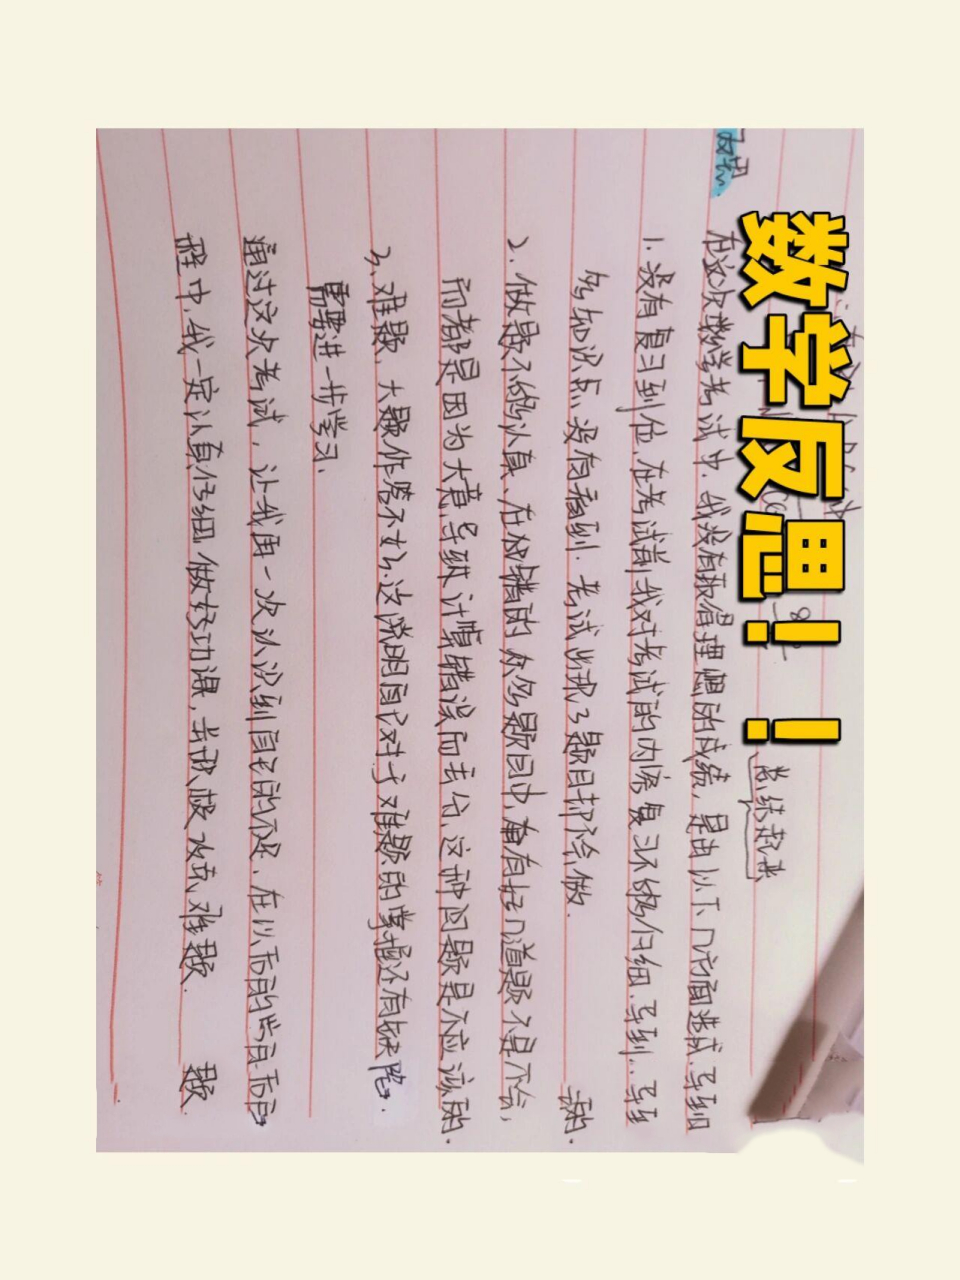 数学反思！！
反思.
总结起来
在这次数学考试中，我没有取得理想的成绩，是由以下几方面造成，导到
1.没有复习到位，在考试前我对考试的内容复习不够仔细，导到，导
多知识点没有看到.考试出现了题目却不会做.
2.做题不够认真、在做错的众多题目中，有好几道题不是不会，
而都是因为大意导致计算错误而丢分，这种问题是不应该的.
3、难题，大题作答不好，这说明自己对于难题的掌握还有缺陷.
需要进一步学习.
通过这次考试，让我再一次认识到自己的不足，在以后的学习
程中，我一定认真仔细，做好功课，去积极攻克难题.
题